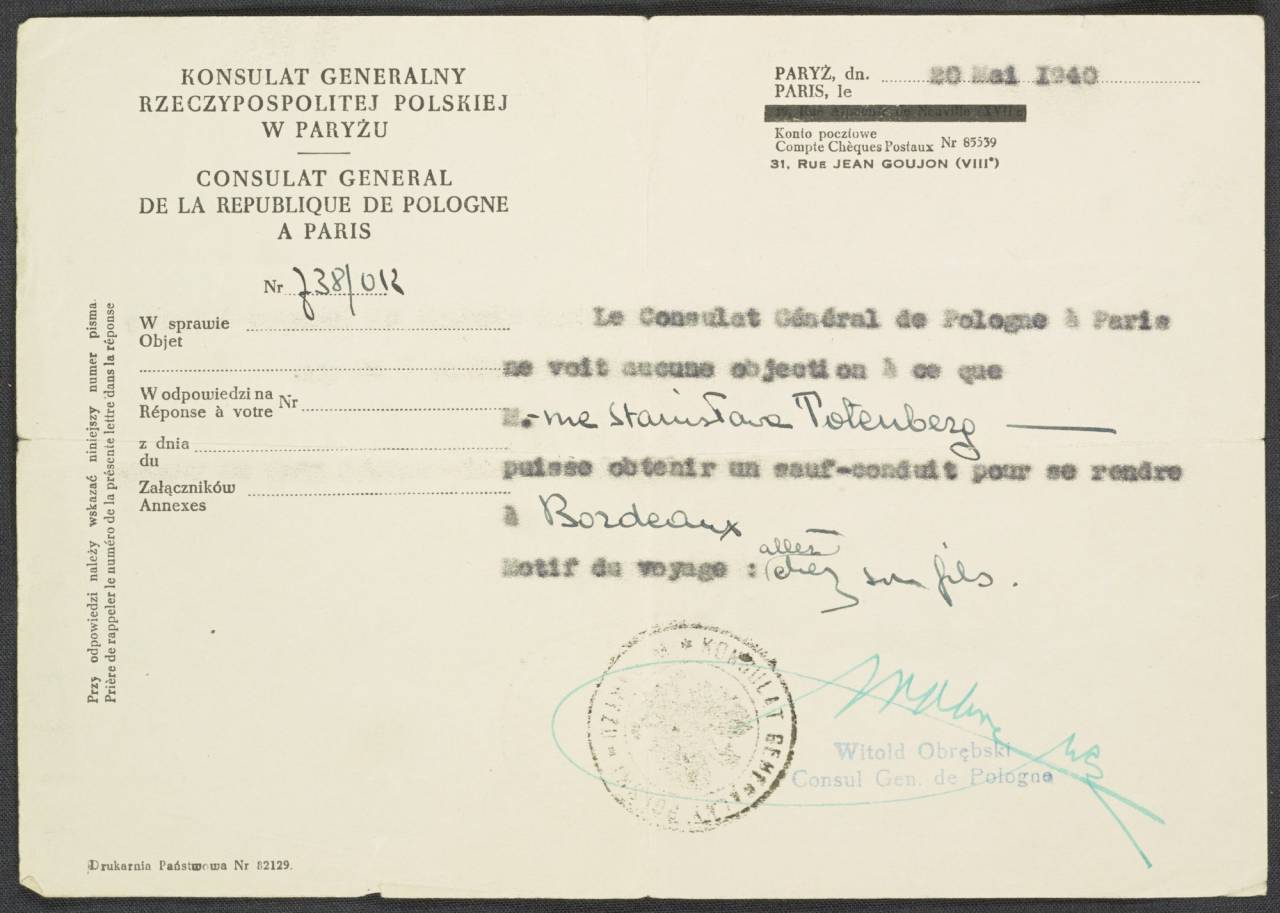 KONSULAT GENERALNY
RZECZYPOSPOLITEJ POLSKIEJ
W PARYŻU
CONSULAT GENERAL
DE LA REPUBLIQUE DE POLOGNE
A PARIS
PARYŻ, dn. 20 Mai 1940
PARIS, le
Konto pocztowe
Compte Chèques Postaux Nr 85539
31, RUE JEAN GOUJON (VIIIᵉ)
Nr 738/OR
W sprawie
Objet
W odpowiedzi na
Réponse à votre Nr
z dnia
du
Załączników
Annexes
Przy odpowiedzi należy wskazać niniejszy numer pisma
Prière de rappeler le numéro de la présente lettre dans la réponse
Le Consulat Général de Pologne à Paris
ne voit aucune objection à ce que
M.-me Stanisława Totenberg
puisse obtenir un sauf-conduit pour se rendre
à Bordeaux
Motif du voyage : aller chez son fils.
KONSULAT GENERALNY
Witold Obrębski
Consul Gen. de Pologne
Drukarnia Państwowa Nr 82129.